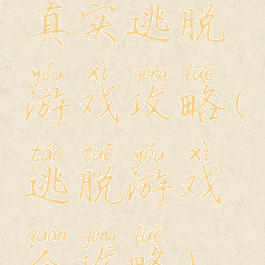 真实逃脱
yóu xì gōng lüè
游戏攻略(
táo tuō yóu xì
逃脱游戏
quán gōng lüè
全攻略)